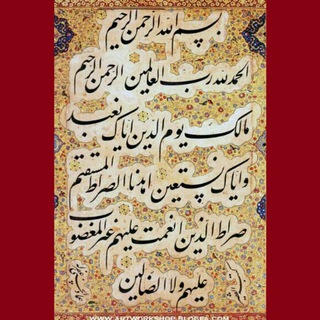 بسم الله الرحمن الرحیم
الحمد لله رب العالمین الرحمن الرحیم
مالک یوم الدین ایاک نعبد
وایاک نستعین اهدنا الصراط المستقیم
صراط الذین انعمت علیهم غیر المغضوب
علیهم ولا الضالین
WWW.ARTWORKSHOP.BLOGFA.COM